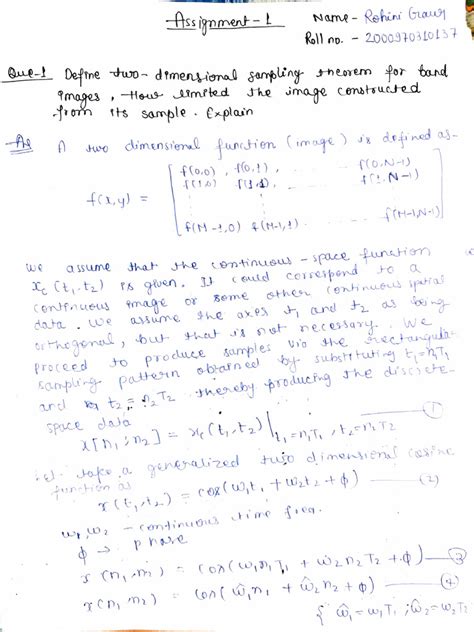 Assignment-1
Name- Rohini Graur
Roll no. - 2000970310137
Que-1 Define two-dimensional sampling theorem for band
images, How limited the image constructed
from its sample. Explain
A two dimensional function (image) is defined as-
f(x,y) = [ f(0,0), f(0,1), .... f(0,N-1)
f(1,0) f(1,1) .... f(1,N-1)
f(M-1,0) f(M-1,1) . f(M-1,N-1) ]
We assume that the continuous-space function
xc(t1,t2) is given. It could correspond to a
continuous image or some other continuous spatial
data. We assume the axes t1 and t2 as being
orthogonal, but that is not necessary. We
proceed to produce samples via the rectangular
sampling pattern obtained by substituting t1=n1T1
and t2 = n2T2 thereby producing the discrete-
space data
x[n1,n2] = xc(t1,t2)|t1=n1T1, t2=n2T2 — (1)
take a generalized two dimensional cosine
function as
x(t1,t2) = cos(w1t1+w2t2+ϕ) — (2)
w1,w2 - continuous time freq.
ϕ → phase
x(n1,n2) = cos(w1n1T1 + w2n2T2 + ϕ) — (3)
x(n1,n2) = cos(ŵ1n1 + ŵ2n2 + ϕ) — (4)
{ ŵ1 = w1T1 ; ŵ2 = w2T2